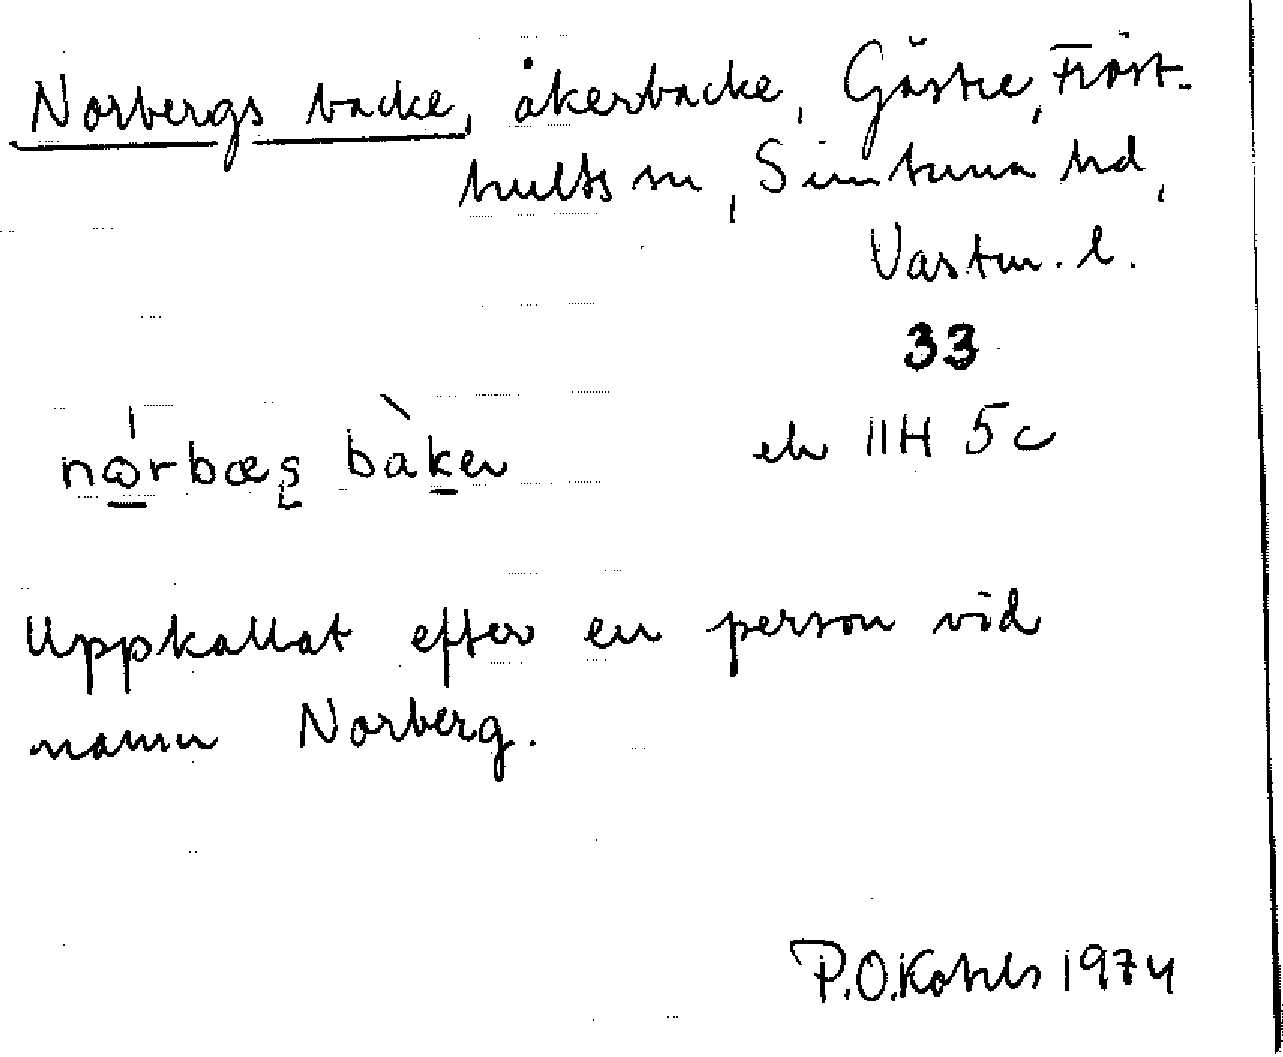 Norbergs backe, åkerbacke, Gästre, Fröst-
hults sn, Simtuna hd,
Västm. l.
33
ek 11H 5c
nǫrbæs bàken
Uppkallat efter en person vid
namn Norberg.
P.O. Kohls 1974